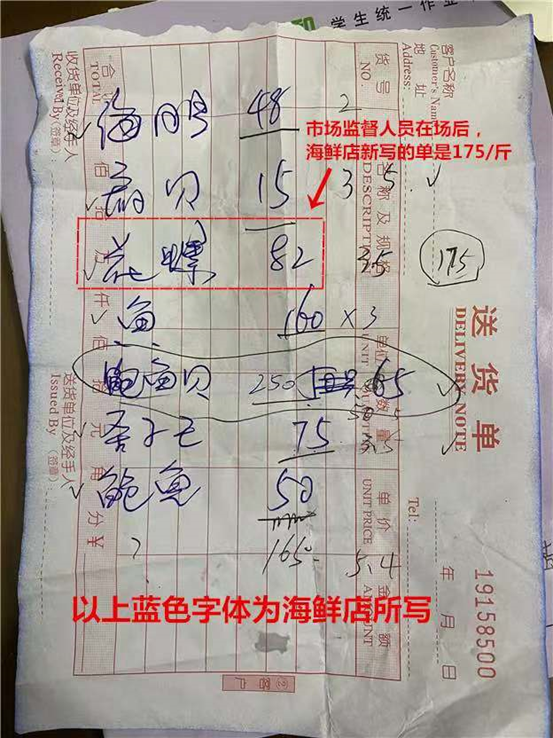 学生统一作业
市场监督人员在场后，
海鲜店新写的单是175/斤
48 2
贝 15 3 5
花螺 82 35
175
鱼 160 x 3
鲍鱼贝 250 65
75 35
鲍鱼 50
165
5.4
?
以上蓝色字体为海鲜店所写
送货单
DELIVERY NOTE
客户名称
Customer's Name
地址
Address:
Tel:
年 月 日
19158500
货号
NO.
名称及规格
DESCRIPTION
单位
UNIT
数量
单价
UNIT PRICE
金额
AMOUNT
合计
TOTAL
佰 拾 万 仟 佰 拾 元 角 分 ¥
收货单位及经手人
Received By:
(签章)
送货单位及经手人
Issued By
(签章)
②客户